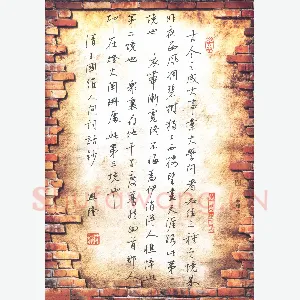 古今之成大事業大學問者必經三種之境界
昨夜西風凋碧樹獨上西樓望盡天涯路此第
一境也衣帶漸寬終不悔為伊消得人憔悴此
第二境也衆裏尋他千百度回首那人
却在燈火闌珊處此第三境也
清王國維人間詞話鈔